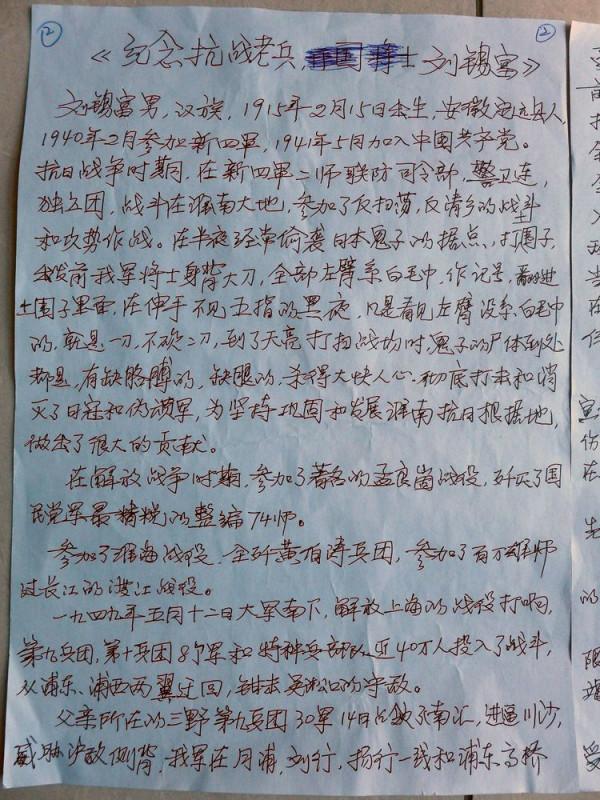 ② ②
《纪念抗战老兵、刘锡富》
刘锡富男，汉族，1915年2月15日出生，安徽定远县人，
1940年2月参加新四军，1941年5月加入中国共产党。
抗日战争时期，在新四军二师联防司令部，警卫连，
独立团，战斗在淮南大地，参加了反扫荡，反清乡的战斗
和攻势作战。在半夜经常偷袭日本鬼子的据点、打围子，
出发前我军将士身背大刀，全部左臂系白毛巾，作记号，翻进
土围子里面，在伸手不见五指的黑夜，只是看见左臂没系白毛巾
的，就是一刀，不砍二刀，到了天亮打扫战场时，鬼子的尸体到处
都是，有缺胳膊的，缺腿的，杀得大快人心，彻底打击和消
灭了日寇和伪顽军，为坚持巩固和发展淮南抗日根据地，
做出了很大的贡献。
在解放战争时期，参加了著名的孟良崮战役，歼灭了国
民党军最精锐的整编74师。
参加了淮海战役，全歼黄伯涛兵团，参加了百万雄师
过长江的渡江战役。
一九四九年五月十二日大军南下，解放上海的战役打响，
第九兵团，第十兵团8个军和特种兵部队近40万人投入了战斗，
从浦东、浦西两翼迂回，钳击吴淞口的守敌。
父亲所在的三野第九兵团30军14日攻缺南汇，进逼川沙，
威胁沪敌侧背，我军在月浦，刘行，杨行一线和浦东高桥